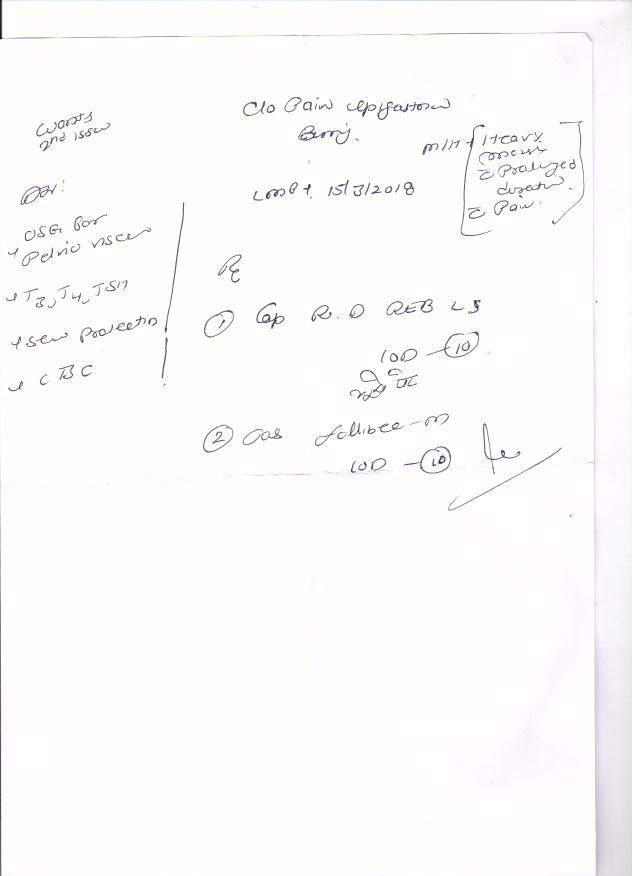 Wants
2nd issue
C/o Pain epigastric
M/H + Heavy
menses
c̄ Prolonged
duration.
c̄ Pain.
LMP +, 15/3/2018
Adv:
USG for
Pelvic viscera
T3, T4, TSH
Serum Prolactin
CBC
Rx
① Cap R.D REB LS
10D - ⑩
② Cas follibee-m
10D - ⑩